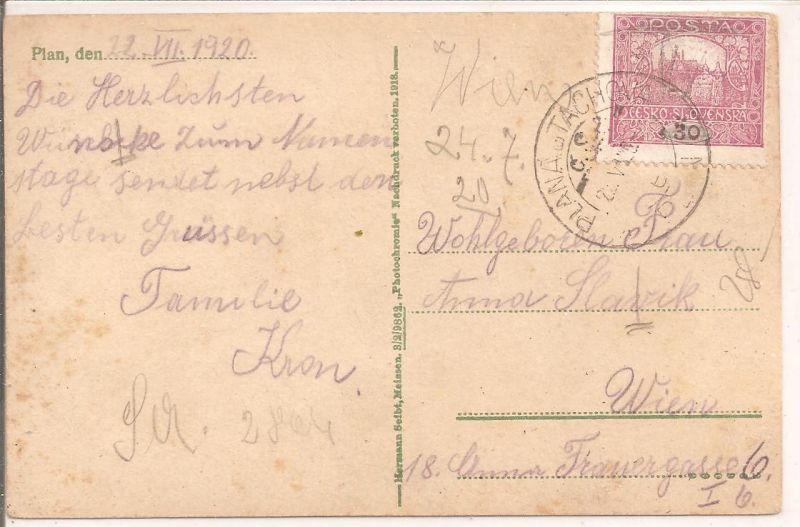 Plan, den 22. VII. 1920.
Die Herzlichsten
Wünsche zum Namen
stage sendet nebst den
besten Grüssen
Familie
Kron.
Hermann Seibt, Meissen. 3/2/9862. „Photochromie" Nachdruck verboten. 1918.
Wien
24. 7.
20
POŠTA
ČESKO-SLOVENSKÁ
30
PLANÁ TACHOV
Wohlgeboren Frau
Anna Slavik
Wien
18. Anna Frauergasse 6.
I 6.